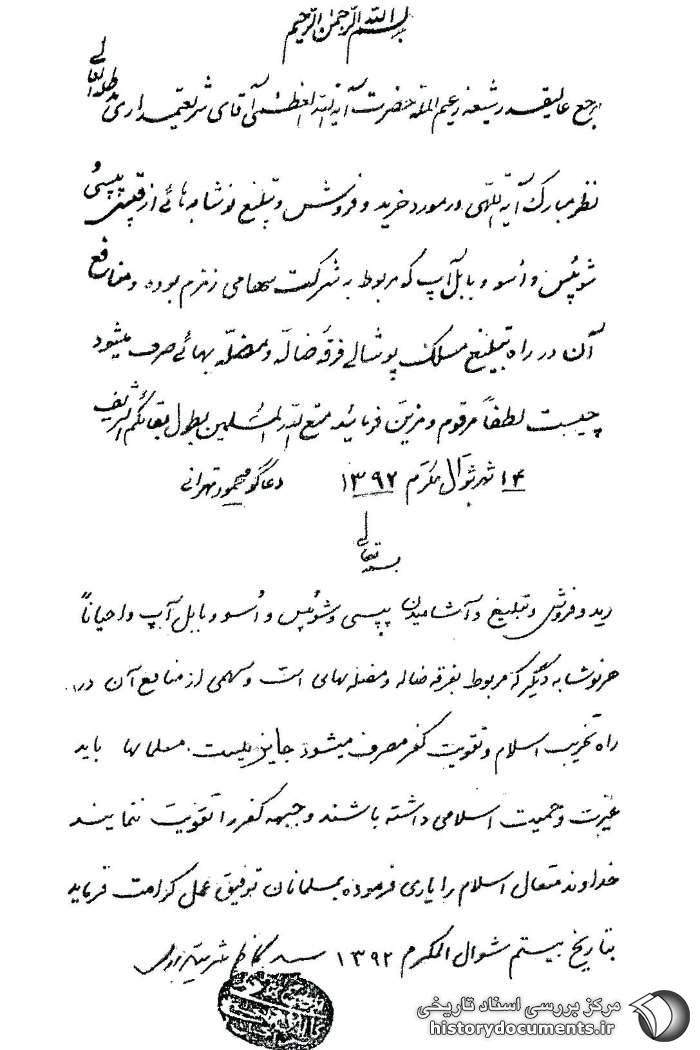 بسم الله الرحمن الرحیم
مرجع عالیقدر شیعه زعیم المله حضرت آیة الله العظمی آقای شریعتمداری مدظله العالی
نظر مبارک آیة اللهی در مورد خرید و فروش و تبلیغ نوشابه هائی از قبیل پپسی
شوئپس و اسو و بابل آپ که مربوط به شرکت سهامی زمزم بوده و منافع
آن در راه تبلیغ مسلک پوشالی فرقه ضاله و مضله بهائی صرف میشود
چیست لطفاً مرقوم و مزین فرمائید متع الله المسلمین بطول بقائکم الشریف
۱۴ شهر شوال مکرم ۱۳۹۲ دعاگو محمود تهرانی
بسمه تعالی
رید و فروش و تبلیغ و آشامیدن پپسی و شوئپس و اسو و بابل آپ و احیاناً
هر نوشابه دیگر که مربوط بفرقه ضاله و مضله بهائی است و سهمی از منافع آن در
راه تخریب اسلام و تقویت کفر مصرف میشود جایز نیست. مسلمانها باید
غیرت و حمیت اسلامی داشته باشند و جبهه کفر را تقویت ننمایند
خداوند متعال اسلام را یاری فرموده بمسلمانان توفیق عمل کرامت فرماید
بتاریخ بیستم شوال المکرم ۱۳۹۲ سید کاظم شریعتمداری
مرکز بررسی اسناد تاریخی
historydocuments.ir